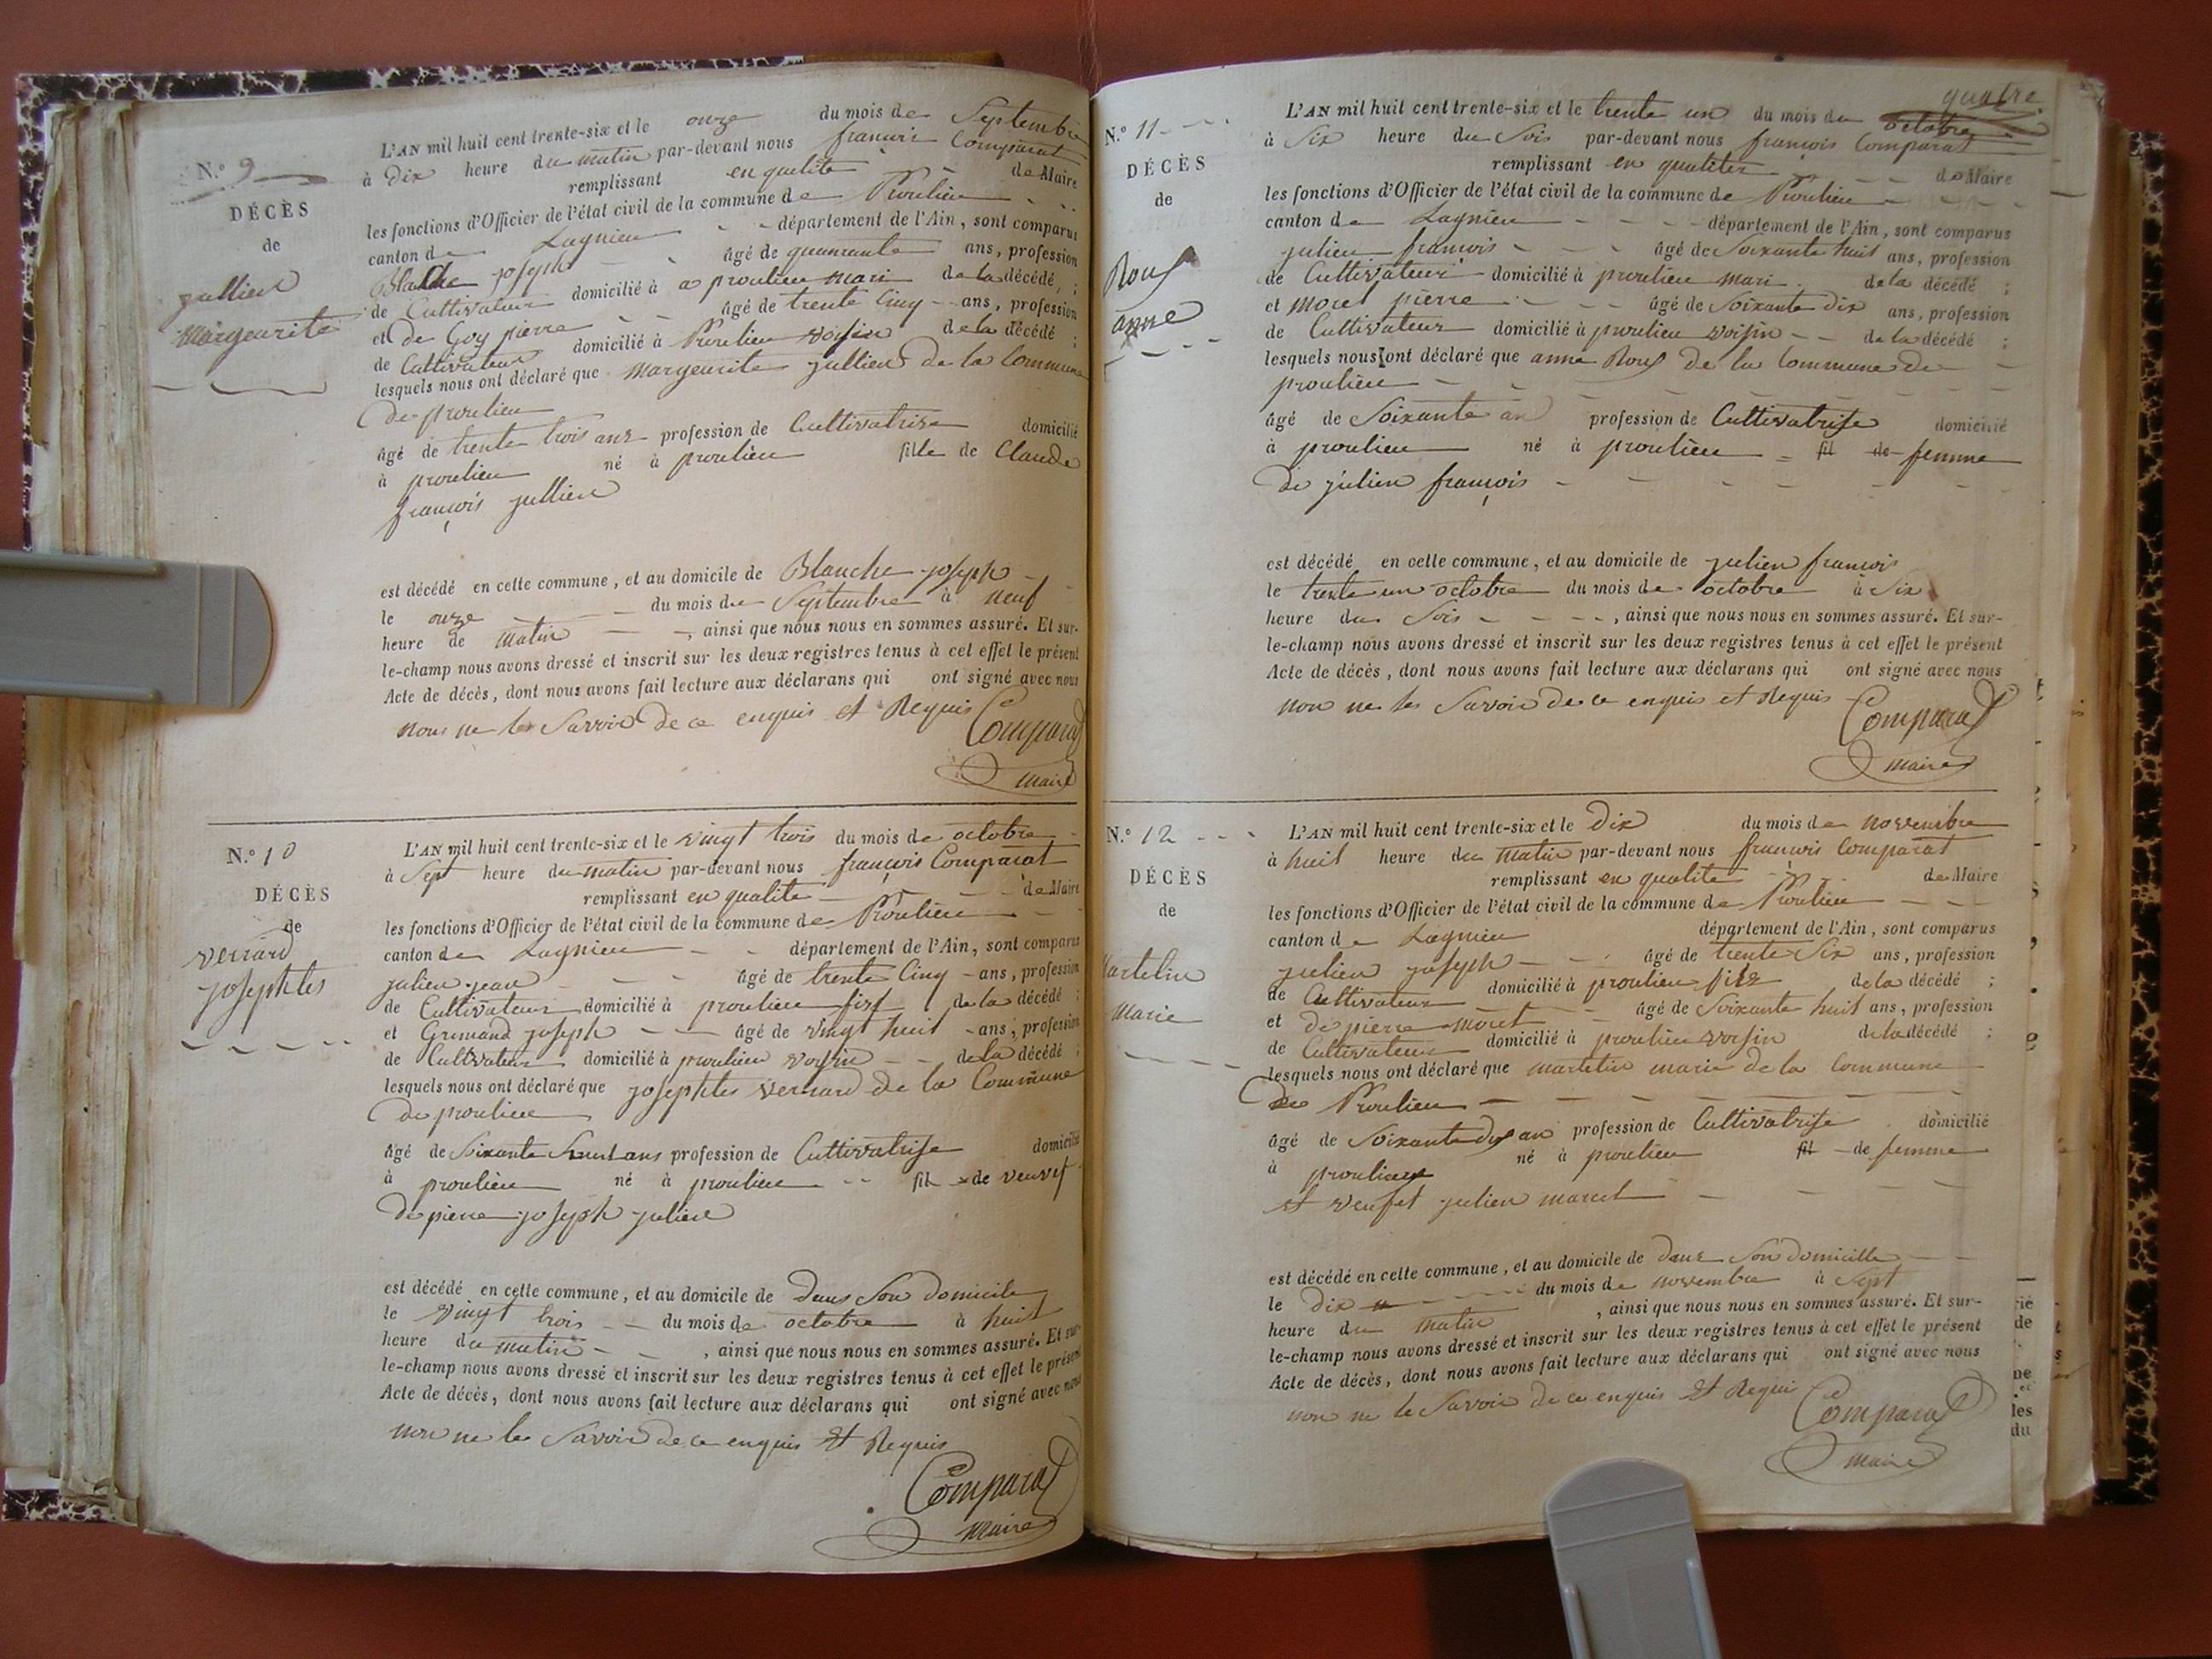 N.° 9
DÉCÈS
de
jullien
Margeurite
L'AN mil huit cent trente-six et le onze du mois de Septembre
à Dix heure du matin par-devant nous françois Comparat
remplissant en qualité de Maire
les fonctions d'Officier de l'état civil de la commune de Proulieu
canton de Lagnieu département de l'Ain, sont comparus
Blache joseph âgé de quanrante ans, profession
de Cultivateur domicilié à a proulieu mari de la décédé ;
et de Goy pierre âgé de trente Cinq ans, profession
de Cultivateur domicilié à Proulieu voisin de la décédé ;
lesquels nous ont déclaré que Margeurite jullien de la Commune
De proulieu
âgé de trente trois ans profession de Cultivatrise domicilié
à proulieu né à proulieu fille de Claude
françois jullien
est décédé en cette commune, et au domicile de Blanche joseph
le onze du mois de Septembre à neuf
heure de matin, ainsi que nous nous en sommes assuré. Et sur-
le-champ nous avons dressé et inscrit sur les deux registres tenus à cet effet le présent
Acte de décès, dont nous avons fait lecture aux déclarans qui ont signé avec nous
nous ne les Savoir de ce enquis et Requis Comparat
maire
N.° 10
DÉCÈS
de
verrard
josephtes
L'AN mil huit cent trente-six et le vingt trois du mois de octobre
à Sept heure du matin par-devant nous françois Comparat
remplissant en qualité de Maire
les fonctions d'Officier de l'état civil de la commune de Proulieu
canton de Lagnieu département de l'Ain, sont comparus
julien jean âgé de trente Cinq ans, profession
de Cultivateur domicilié à proulieu fisf de la décédé ;
et Grumand joseph âgé de vingt huit ans, profession
de Cultivateur domicilié à proulieu voisin de la décédé ;
lesquels nous ont déclaré que josephtes verrard de la Commune
De proulieu
âgé de Soixante ans profession de Cultivatrise domicilié
à proulieu né à proulieu fil de veuvef
De pierre joseph julien
est décédé en cette commune, et au domicile de Dans Son Domicile
le vingt trois du mois de octobre à huit
heure du matin, ainsi que nous nous en sommes assuré. Et sur-
le-champ nous avons dressé et inscrit sur les deux registres tenus à cet effet le présent
Acte de décès, dont nous avons fait lecture aux déclarans qui ont signé avec nous
non ne les Savoir de ce enquis Et Requis
Comparat
maire
quatre
N.° 11
DÉCÈS
de
Rouf
anne
L'AN mil huit cent trente-six et le trente un du mois de octobre
à Six heure du Soir par-devant nous françois Comparat
remplissant en qualiter de Maire
les fonctions d'Officier de l'état civil de la commune de Proulieu
canton de Lagnieu département de l'Ain, sont comparus
julien françois âgé de Soixante huit ans, profession
de Cultivateur domicilié à proulieu mari de la décédé ;
et moret pierre âgé de Soixante Dix ans, profession
de Cultivateur domicilié à proulieu voisin de la décédé ;
lesquels nous ont déclaré que anne Rouf de la Commune de
proulieu
âgé de Soixante an profession de Cultivatrise domicilié
à proulieu né à proulieu fil de femme
De julien françois
est décédé en cette commune, et au domicile de julien françois
le trente un octobre du mois de octobre à Six
heure du Soir, ainsi que nous nous en sommes assuré. Et sur-
le-champ nous avons dressé et inscrit sur les deux registres tenus à cet effet le présent
Acte de décès, dont nous avons fait lecture aux déclarans qui ont signé avec nous
non ne les Savoir de ce enquis et Requis Comparat
maire
N.° 12
DÉCÈS
de
Martelin
Marie
L'AN mil huit cent trente-six et le Dix du mois de novembre
à huit heure du matin par-devant nous françois Comparat
remplissant en qualité de Maire
les fonctions d'Officier de l'état civil de la commune de Proulieu
canton de Lagnieu département de l'Ain, sont comparus
julien joseph âgé de trente Six ans, profession
de Cultivateur domicilié à proulieu fils de la décédé ;
et de pierre moret âgé de Soixante huit ans, profession
de Cultivateur domicilié à proulieu voisin de la décédé ;
lesquels nous ont déclaré que martelin marie de la Commune
De Proulieu
âgé de Soixante dix an profession de Cultivatrise domicilié
à proulieu né à proulieu fil de femme
et veufet julien marcel
est décédé en cette commune, et au domicile de Dans Son Domicille
le Dix du mois de novembre à Sept
heure du matin, ainsi que nous nous en sommes assuré. Et sur-
le-champ nous avons dressé et inscrit sur les deux registres tenus à cet effet le présent
Acte de décès, dont nous avons fait lecture aux déclarans qui ont signé avec nous
non ne le Savoir de ce enquis Et Requis Comparat
maire